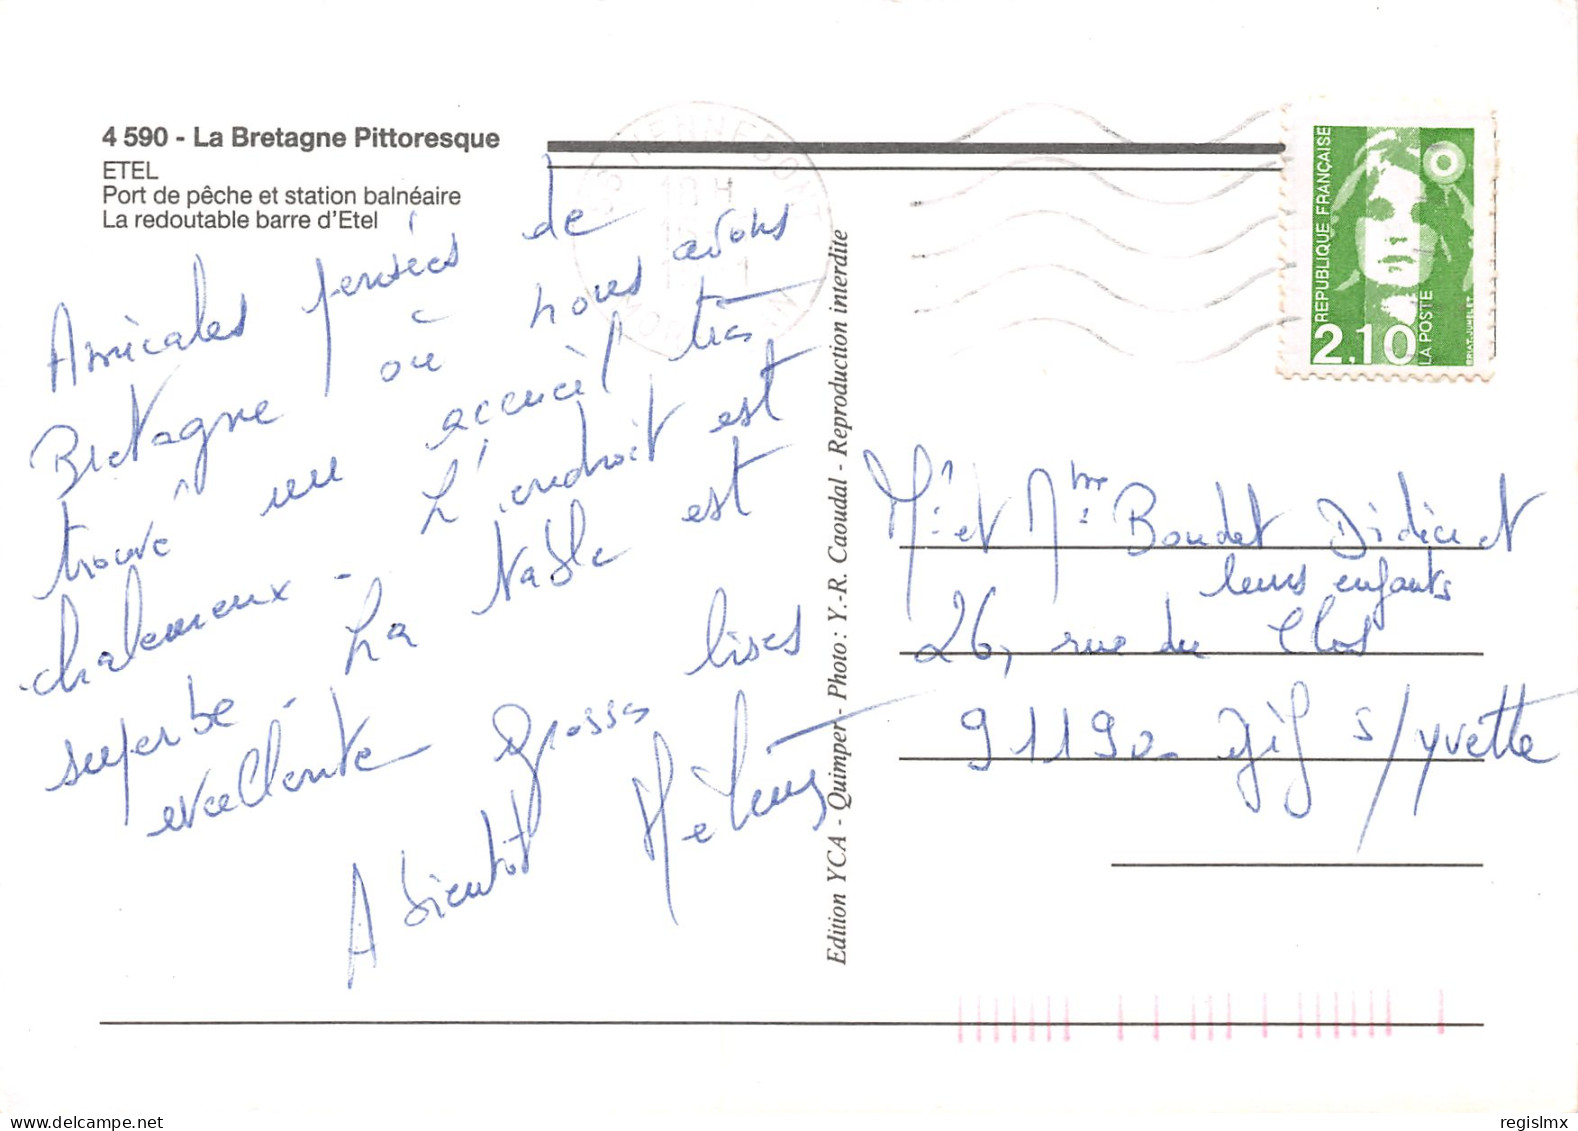 4 590 - La Bretagne Pittoresque
ETEL
Port de pêche et station balnéaire
La redoutable barre d'Etel
Amicales pensées de
Bretagne où nous avons
trouvé un accueil très
chaleureux - L'endroit est
superbe - La table est
excellente Grosses bises
A bientôt
HENNEBONT
10 H
MORBIHAN
REPUBLIQUE FRANÇAISE
2,10
LA POSTE
BRIAT-JUMELET
Edition YCA - Quimper - Photo : Y.-R. Caoudal - Reproduction interdite
Mr et Mme Boudet Didier et
leurs enfants
26, rue du Clos
91190 Gif s/Yvette
regislmx